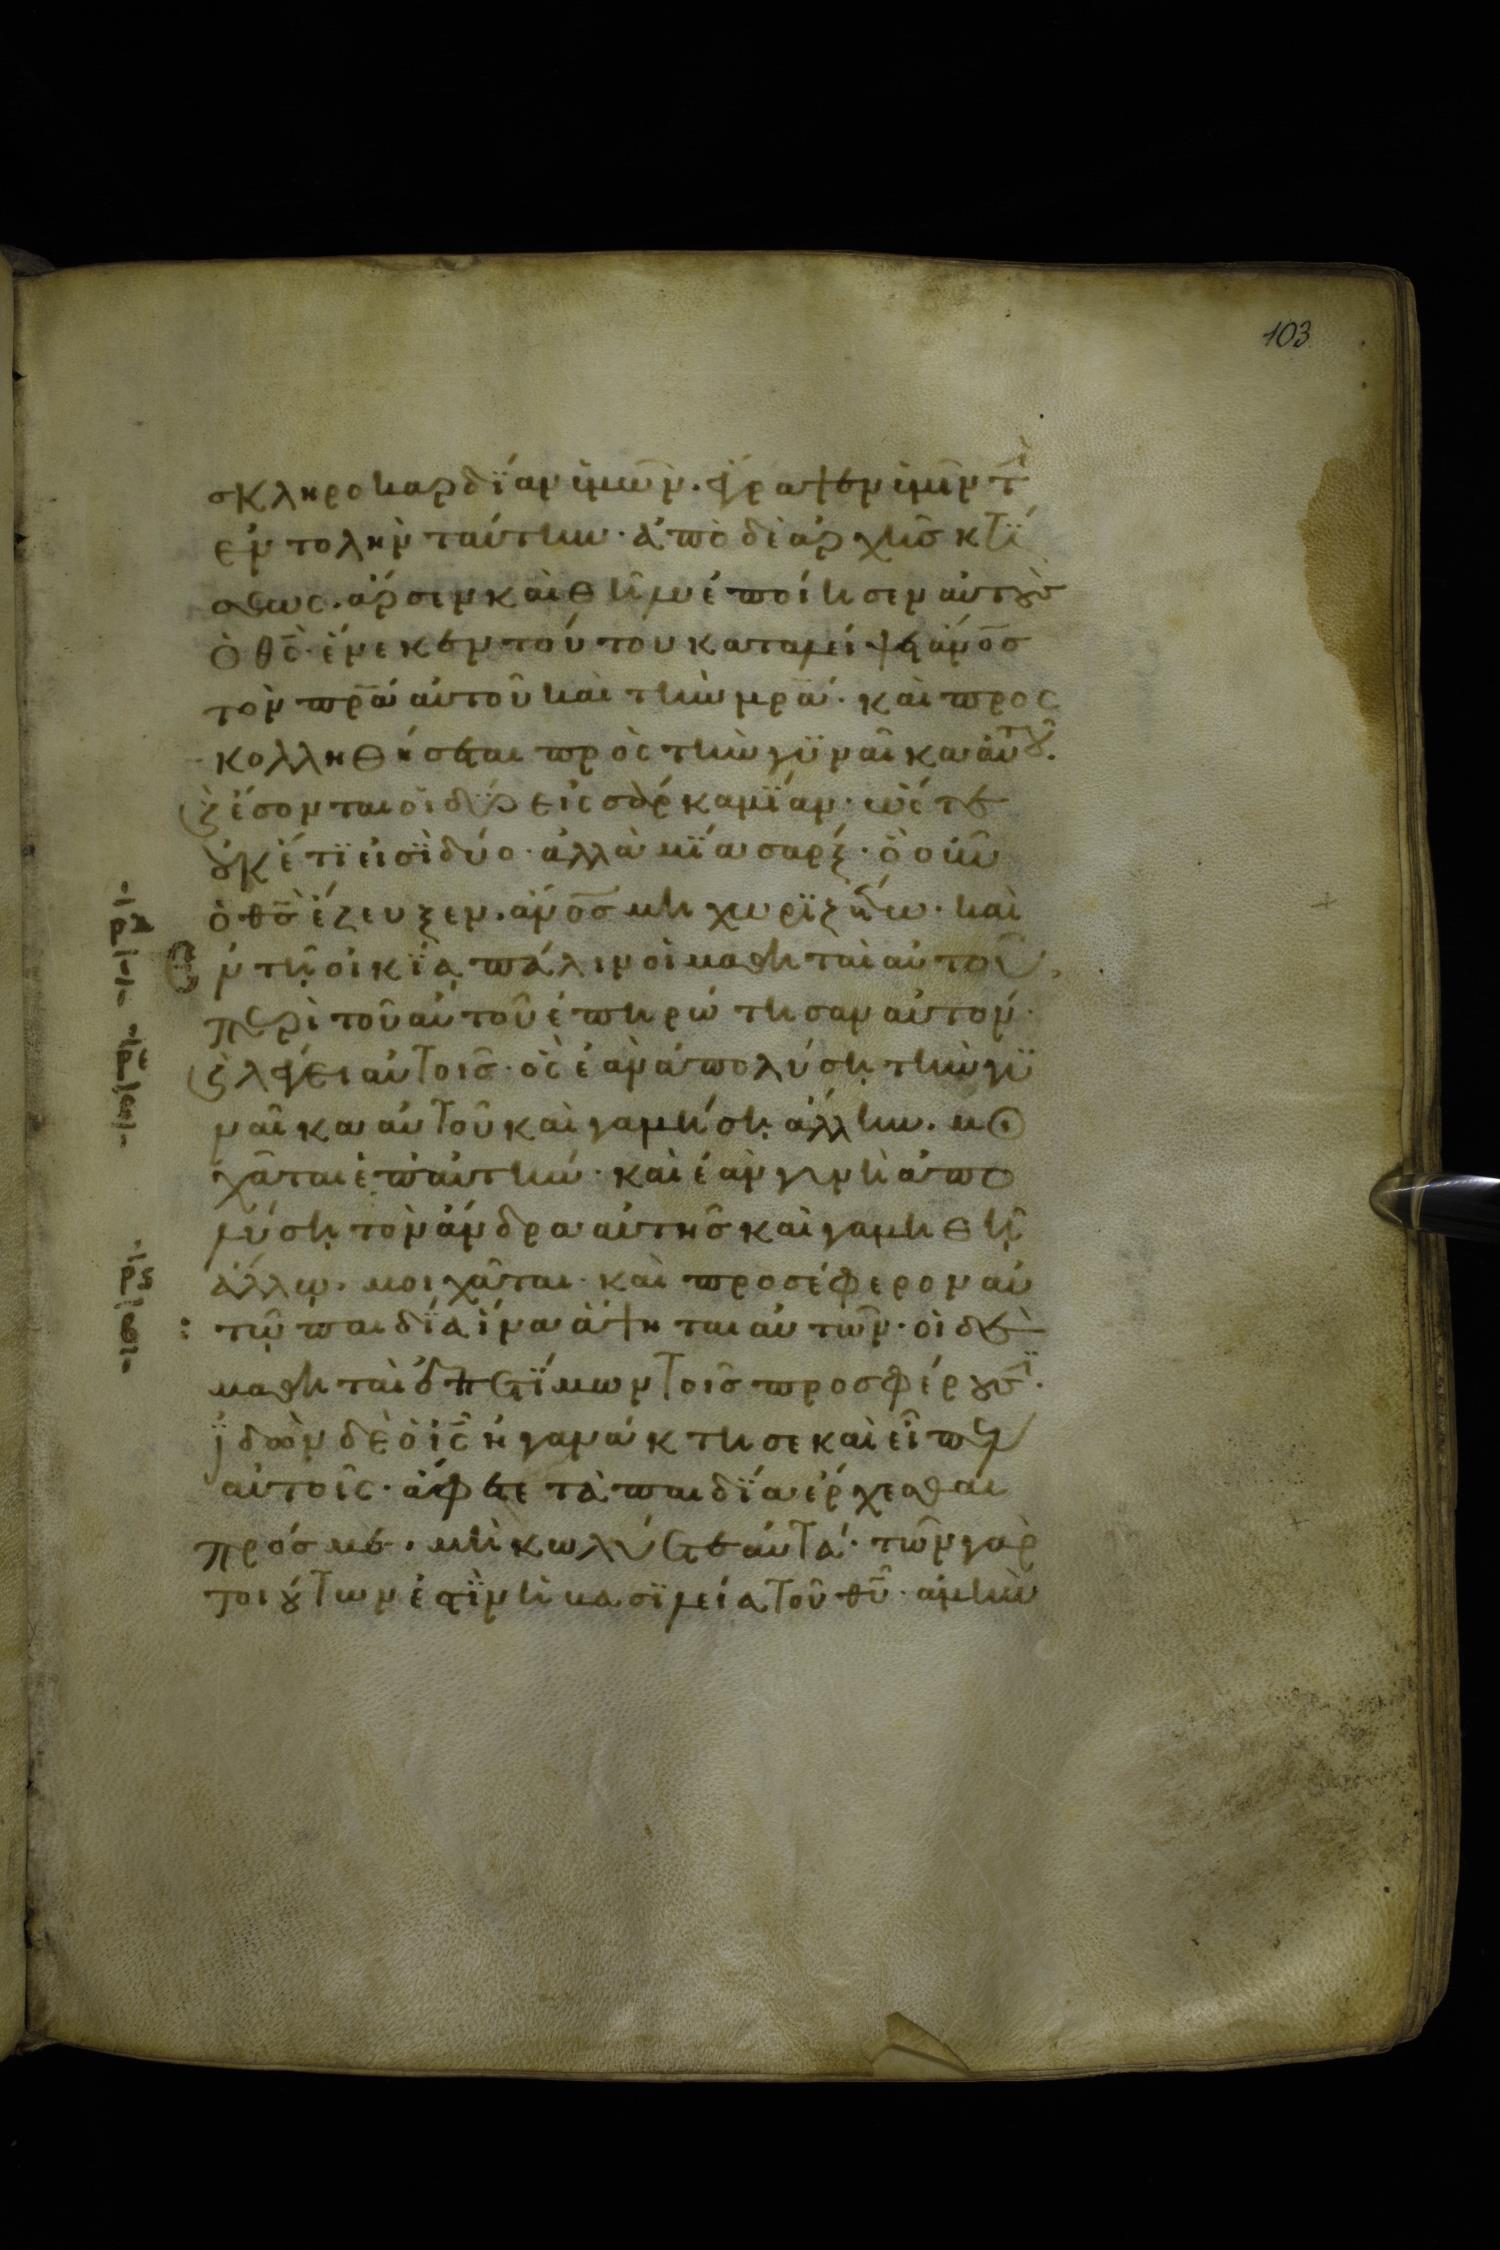 103
σκληροκαρδΐαν ὑμῶν. ἔγραψεν ὑμῖν τὴ
ἐντολὴν ταύτην· ἀπὸ δὲ ἀρχῆς κτΐ
σεως. ἄρσεν καὶ θῆλυ ἐποίησεν αὐτοὺς
ὁ θς̄· ἕνεκεν τούτου καταλείψει ἄνο̄ς
τὸν πρ̄α αὐτοῦ καὶ τὴν μρ̄α· καὶ προς
κολληθήσεται πρὸς τὴν γϋναῖκα αὐτοῦ.
ϗ ἔσονται οἱ δύο εἰς σάρκα μΐαν· ὥστε
οὐκέτϊ εἰσὶ δύο· ἀλλὰ μΐα σάρξ· ὃ οὖν
ὁ θς̄ ἔζευξεν. ἄνο̄ς μὴ χωρϊζέτω· καὶ
Ἐν τῇ οἰκΐᾳ πάλιν οἱ μαθηταὶ αὐτοῦ,
περὶ τοῦ αὐτοῦ ἐπηρώτησαν αὐτόν·
ϗ λέγει αὐτοῖς· ὃς ἐὰν ἀπολύσῃ τὴν γϋ
ναῖκα αὐτοῦ καὶ γαμήσῃ ἄλλην. μο
χᾶται ἐπ' αὐτήν· καὶ ἐὰν γυνὴ ἀπο
λύσῃ τὸν ἄνδρα αὐτῆς καὶ γαμηθῇ
ἄλλῳ. μοιχᾶται· καὶ προσέφερον αὐ
τῷ παιδΐα ἵνα ἅψηται αὐτῶν· οἱ δὲ
μαθηταὶ ἐπετΐμων τοῖς προσφέρουσϊ.
ἰδὼν δὲ ὁ ις̄ ἠγανάκτησε καὶ εἶπεν
αὐτοῖς· ἄφετε τὰ παιδΐα ἔρχεσθαι
πρός με. μὴ κωλύετε αὐτά· τῶν γὰρ
τοιούτων ἐστῒν ἡ βασϊλεία τοῦ θῡ· ἀμὴν